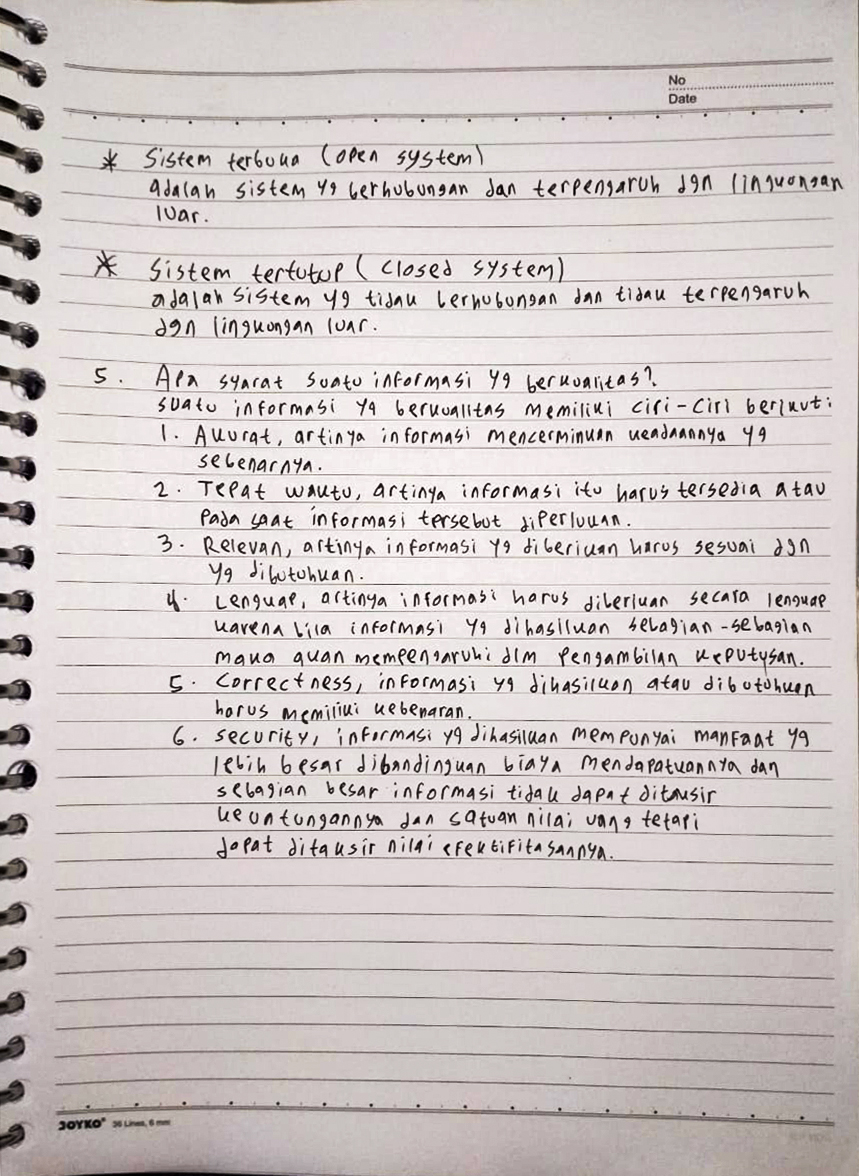 No
Date
* Sistem terbuka (open system)
adalah sistem yg berhubungan dan terpengaruh dgn lingkungan
luar.
* Sistem tertutup (closed system)
adalah sistem yg tidak berhubungan dan tidak terpengaruh
dgn lingkungan luar.
5. Apa syarat suatu informasi yg berkualitas?
suatu informasi yg berkualitas memiliki ciri-ciri berikut:
1. Akurat, artinya informasi mencerminkan keadaannya yg
sebenarnya.
2. Tepat waktu, artinya informasi itu harus tersedia atau
pada saat informasi tersebut diperlukan.
3. Relevan, artinya informasi yg diberikan harus sesuai dgn
yg dibutuhkan.
4. Lengkap, artinya informasi harus diberikan secara lengkap
karena bila informasi yg dihasilkan sebagian-sebagian
maka akan mempengaruhi dlm pengambilan keputusan.
5. Correctness, informasi yg dihasilkan atau dibutuhkan
harus memiliki kebenaran.
6. security, informasi yg dihasilkan mempunyai manfaat yg
lebih besar dibandingkan biaya mendapatkannya dan
sebagian besar informasi tidak dapat ditaksir
keuntungannya dan satuan nilai uang tetapi
dapat ditaksir nilai efektifitasannya.
JOYKO 36 Lines, 6 mm